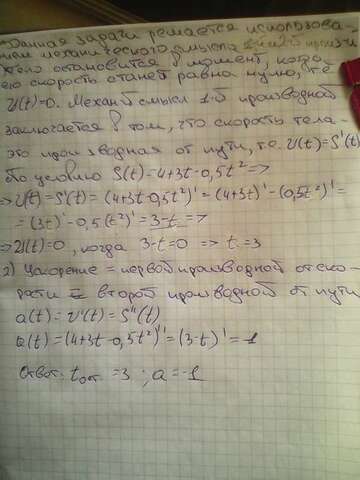 Данная задача решается использова-
нием механического смысла 1-й и 2-й произв.
Тело остановится в момент, когда
его скорость станет равна нулю, т.е
V(t)=0. Механ-й смысл 1-й производной
заключается в том, что скорость тела-
это производная от пути, т.е. V(t)=S'(t)
По условию S(t)=4+3t-0,5t² =>
=> V(t)=S'(t)=(4+3t-0,5t²)'=(4+3t)'-(0,5t²)'=
=(3t)'-0,5(t²)'=3-t =>
=> V(t)=0, когда 3-t=0 => t=3
2) Ускорение = первой производной от ско-
рости = второй производной от пути
a(t)=v'(t)=S''(t)
a(t)=(4+3t-0,5t²)''=(3-t)'=-1
Ответ: tот. =3 ; a=-1